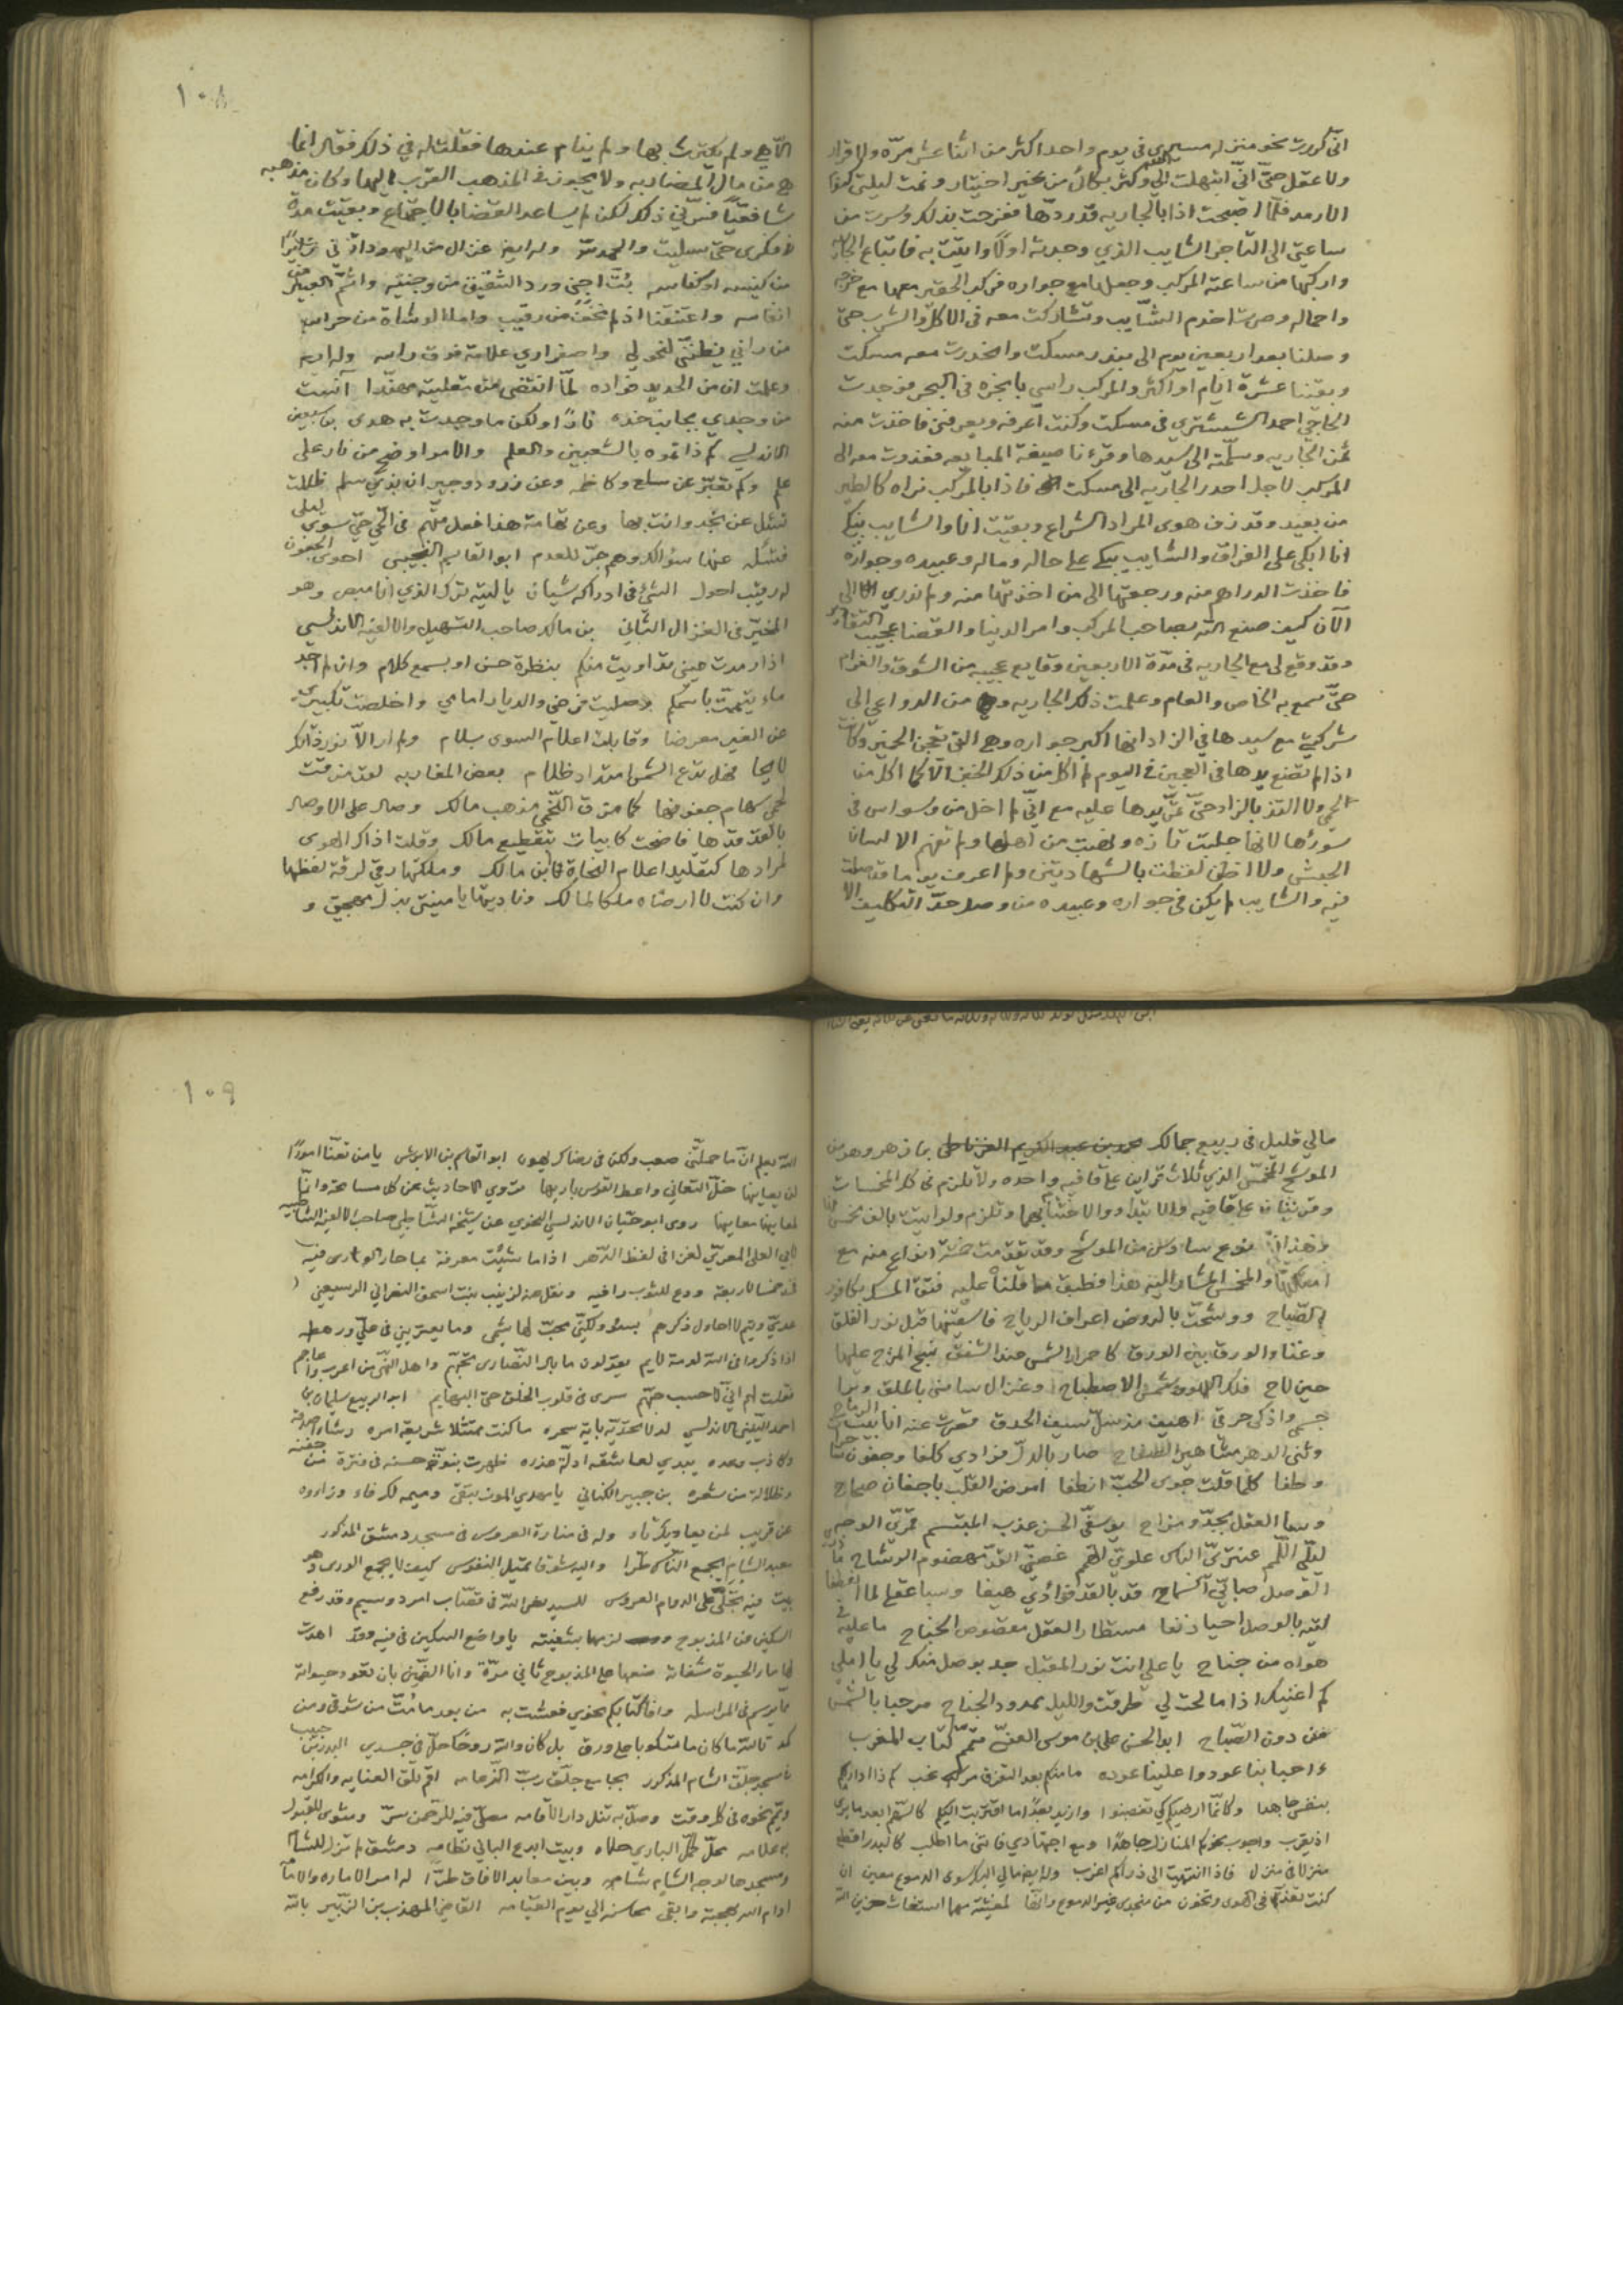 اني كررت نحو منزله مسيري في يوم واحد اكثر من اثنا عشر مرّه ولا قرار
ولا عقل حتّى انّي ابتهلت الى الله وكثر بكائي من غير اختيار ونمت ليلتي
الارمد فلمّا اصبحت اذا بالجاريه قد ردّها ففرحت بذلك وسرت من
ساعتي الى التاجر الشايب الذي وجدته اولاً واتيت به فابتاع الجاريه
واركبها من ساعته المركب وجعلها مع جواره فركب الحقير معها مع
واحماله وصرت اخدم الشايب وتشاركت معه في الاكل والشرب حتّى
وصلنا بعد اربعين يوم الى بندر مسكت وانحدرت معه مسكت
وبقينا عشرة ايام او اكثر والمركب راسي بانجره في البحر فوجدت
الحاجي احمد الششتري في مسكت وكنت اعرفه ويعرفني فاخذت منه
ثمن الجاريه وسلّمته الى سيدها وقرءنا صيغة المبايعه فغدوت معه الى
المركب لاجل احدر الجاريه الى مسكت فاذا بالمركب نراه كالطير
من بعيد وقد زف هوى المراد الشراع وبقيت انا والشايب نبكي
انا ابكي على الفراق والشايب يبكي على حاله وماله وعبيده وجواره
فاخذت الدراهم منه ورجعتها الى من اخذتها منه ولم ندري الى
الآن كيف صنع الله بصاحب المركب وامر الدنيا والقضا عجيب
وقد وقع لي مع الجاريه في مدّة الاربعين وقايع عجيبه من الشوق والغرام
حتّى سمع به الخاص والعام وعلمت ذلك الجاريه وهي من الدواعي الى
شركتي مع سيدها في الزاد انها اكبر جواره وهي التي تعجن الخبز وكانت
اذا لم تضع يدها في العجين في اليوم لم اكل من ذلك الخبز الا كما اكل من
الحمي ولا التذ بالزاد حتّى تمرّ يدها عليه مع انّي لم اخل من وسواس في
سورها لانها جلبت تازه ونهبت من اهلها ولم تفهم الا لسان
الحبش ولا اظن لفظت بالشهادتين ولم اعرف يوما قد صلت
فيه والشايب لم يكن في جواره وعبيده من وصل حدّ التكليف الا
١٠٨
الا هي ولم يكترث بها ولم ينام عندها فقلت له في ذلك فقال انها
هي من مال المضاربه ولا يجوز في المذهب القرب اليها وكان مذهبه
شافعيّا فسرّني ذلك لكن لم يساعد القضا بالاجتماع وبقيت مدة
في فكري حتى سليت والحمد لله وله ايضا غزال من اليهود اتى زائرا
من كنيسه او كناسه بتّ اجني ورد الشقيق من وجنتيه واشم العبير من
انفاسه واعتنقنا اذ لم نخف من رقيب وامنا الوشاة من حراسه
من راني يظنّني لنحولي واصفراري علامة فوق راسه وله ايضا
وعلمت ان من الحديد فؤاده لمّا انتضى من مقلتيه مهندا آنست
من وجدي بجانب خدّه نارًا ولكن ما وجدت به هدى بن سبعين
الاندلسي كم ذا تموه بالشعبين والعلم والامر اوضح من نار على
علم وكم تعبّر عن سلع وكاظمه وعن زرود وجيران بذي سلم ظللت
تسئل عن نجد وانت بها وعن تهامة هذا فعل متّهم في الحي حيّ سوى ليلى
فتسئله عنها سؤالك وهم جرّ للعدم ابو القاسم التجيبي احوى الجفون
له رقيب احول الشيء في ادراكه شيئان يا ليته ترك الذي انا مبصر وهو
المخيّر في الغزال الثاني بن مالك صاحب التسهيل والالفيه الاندلسي
اذا رمدت عيني تداويت منكم بنظرة حسن او بسمع كلام وان لم اجد
ماء تيممت باسمكم وصليت فرضي والديار امامي واخلصت تكبيري
عن الغير معرضا وقابلت اعلام السوى بسلام ولم ار الا نور ذاتك
لايحا فهل تدع الشمس امتداد ظلام بعض المغاربه لقد مزقت
لحمي سهام جفونها كما مزق اللخمي مذهب مالك وصال على الاوصال
بالقد قدّها فاضحت كابيات بتقطيع مالك وقلّت اذا ذاك الهوى
لمرادها كتقليد اعلام النحاة لابن مالك وملكتها رقي لرقة لفظها
وان كنت لا ارضاه ملكا لمالك وناديتها يا منيتي بذل مهجتي و
مالي قليل في ربيع جمالك بن زهر وهو من
الموشح المخمّس الذي ثلاث قراين على قافيه واحده ولا تلزم في كل المخمسات
وقرينتان على قافيه والابتداء والاختتام بها وتلزم ولو اتيت بالف مخمس
وهذا نوع سادس من الموشح وقد تقدمت خمسة انواع منه مع
والمخمس المشار اليه هذا فتق المسك بكافور
الصّباح ووشحت بالروض اعراف الرياح فاسقنيها قبل نور الفلق
وغنا والورق بين الورق كاحمرار الشمس عند الشفق نسج المزج عليها
حين لاح فلك اللهو وشمس الاصطباح وغزال سامني بالملق وبرا
جسمي واذكى حرقي اهيف مذ سلّ سيف الحدق قصرت عنه انابيب الرماح
وثنى الذعر مشاهير الصفاح صار بالدلّ فؤادي كلفا وجفون
وطفا كلما قلت جوى الحب انطفا امرض القلب باجفان صحاح
وسبا العقل بجدّ ومزاح يوسفيّ الحسن عذب المبتسم قمريّ الوجه
ليليّ اللّمم عنتريّ الباس علويّ الهمم غصنيّ القدّ مهضوم الوشاح
الوصل طائيّ السماح قد بالقد فؤادي هيفا وسبا عقلي لما انعطفا
ليته بالوصل احيا دنفا مستطار العقل مقصوص الجناح ما عليه في
هواه من جناح يا علي انت نور المقل جد بوصل منك لي يا املي
كم اغنيك اذا ما لحت لي طرقت والليل ممدود الجناح مرحبا بالشمس
من دون الصّباح ابو الحسن علي بن موسى العنسي متمّم كتاب المغرب
ءاحبابنا عودوا علينا عوده ما منكم بعد التفرق مرغب كم ذا اداريكم
بنفسي جاهدا وكانّما ارضيكم كي تغضبوا وازيد بعدًا ما اقتربت اليكم كالسّهم ابعد ما يرى
اذ يقرب واجوب نحوكم المنازل جاهدًا ومع اجتهادي فاتني ما اطلب كالبدر اقطع
منزلا في منزل فاذا انتهيت الى ذراكم اغرب وله ايضا مالي اليك سوى الدموع معين ان
كنت تغدر في الهوى وتخون من منجدي غير الدموع وانّها لمغيثة مهما استغاث حزين الله
١٠٩
الله يعلم انّ ما حملتني صعب ولكن في رضاك يهون ابو القاسم بن الابرش يا من تعنّا امورًا
لن يعاينها خلّ التعاني واعط القوس باريها تروي الاحاديث عن كل مسامحة وانّما
لمعانيها معانيها روى ابو حيّان الاندلسي النحوي عن شيخه الشاطبي صاحب الالفية الشاطبيه
لابي العلى المعريّ لغز في لفظ الدّهر اذا ما شئت معرفة بما حار الورى فيه
فخذ خمسا لاربعة ودع للثوب رافيه ونقل عنه لزينب بنت اسحق النصراني الرسعيني
عديّ وتيم لا احاول ذكرهم بسوء ولكنّي محبّ لهاشم وما يعتريني في عليّ ورهطه
اذا ذكروا في الله لومة لايم يقولون ما بال النّصارى تحبّهم واهل النّهى من اعرب واعاجم
فقلت لهم انّي لاحسب حبّهم سرى في قلوب الخلق حتى البهايم ابو الربيع سليمان بن
احمد الاندلسي لولا تحدّيه باية سحره ما كنت ممتثلا شريعة امره رشاء
وكاذب وعده يبدي لعاشقه ادلّة عذره ظهرت نبوّة حسنه في فترة من جفنه
وظلالة من شعره بن جبير الكناني
عن قريب لمن يعاديك وله في منارة العروس في مسجد دمشق المذكور
معبد الشام يجمع النّاس طرّا واليه شوقا تميل النفوس كيف لا يجمع الورى وهو
بيت فيه تجلّى على الدوام العروس للسيد نصر الله في قصّاب امرد وسيم وقد رفع
السكين من المذبوح لزمها بشفيته يا واضع السكين في فيه وقد اهدت
لها ماء الحيوة شفاته ضعها على المذبوح ثاني مرّة وانا الضّمين بان تعود حيواته
ممّا يرسم في المراسله وافا كتابكم نحوي فعشت به من بعد ما متّ من شوقي ومن
كمد تالله ما كان ما تشكو باعلى ورق بل كان والله روحًا حلّ في جسدي
في مسجد جلّق الشام المذكور بجامع جلّق ربّ الزعامه اقم تلق العنايه والكرامه
ويمّم نحوه في كل وقت وصلّ به تنل دار الاقامه مصلّى فيه للرحمن سرّ ومثوى للقبول
به علامه محلّ كمّل الباري حلاه وبيت ابدع الباني نظامه دمشق لم تزل للشام
ومسجدها لوجه الشام شامه وبين معابد الافاق طرّا له امر الاماره والامامه
ادام الله بهجته وابقى محاسنه الى يوم القيامه القاضي المهذب بن الزّبير بالله